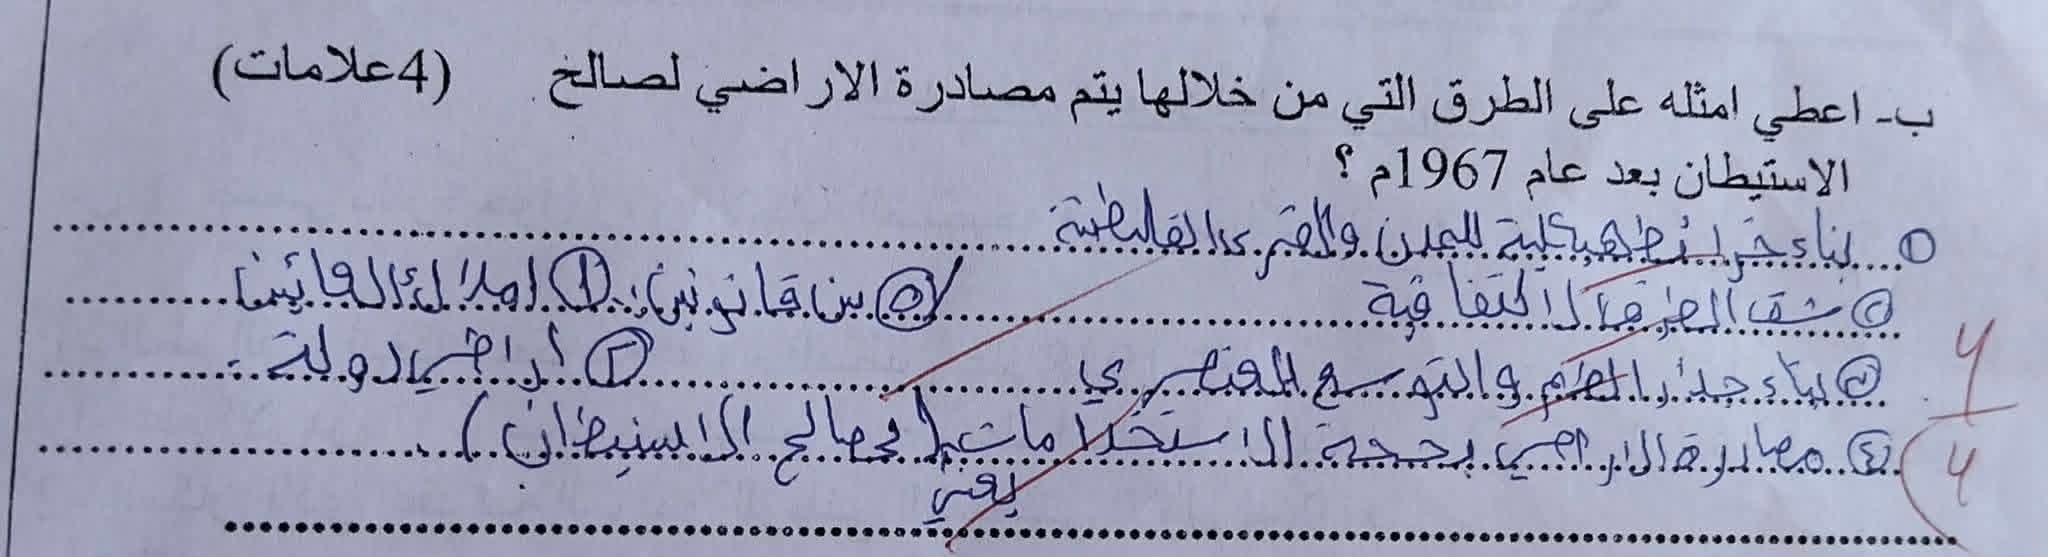 ب- اعطي امثله على الطرق التي من خلالها يتم مصادرة الاراضي لصالح (4علامات)
الاستيطان بعد عام 1967م ؟
① بناء خرائط هيكلية للمدن والقرى الفلسطينية
② شق الطرق الالتفافية ⑤ سن قانونين: ① املاك الغائبين
③ بناء جدار الضم والتوسع العنصري ② أراضي دولة.
④ مصادرة الاراضي بحجة الاستخدامات (لصالح الاستيطان)
يعني
4
4